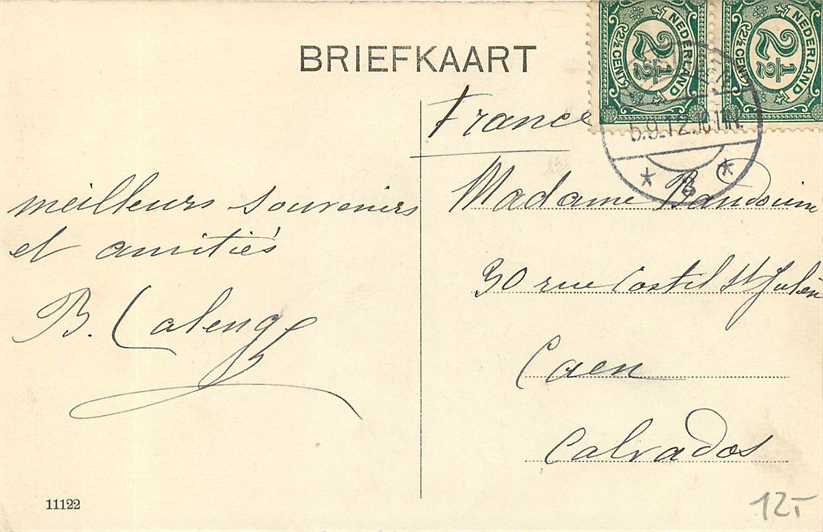 BRIEFKAART
NEDERLAND
2½
2½ CENT
NEDERLAND
2½
2½ CENT
5.9.12.
France
meilleurs souvenirs
et amitiés
B.
Madame Baudouin
30 rue Costil St Julien
Caen
Calvados
11122
12-